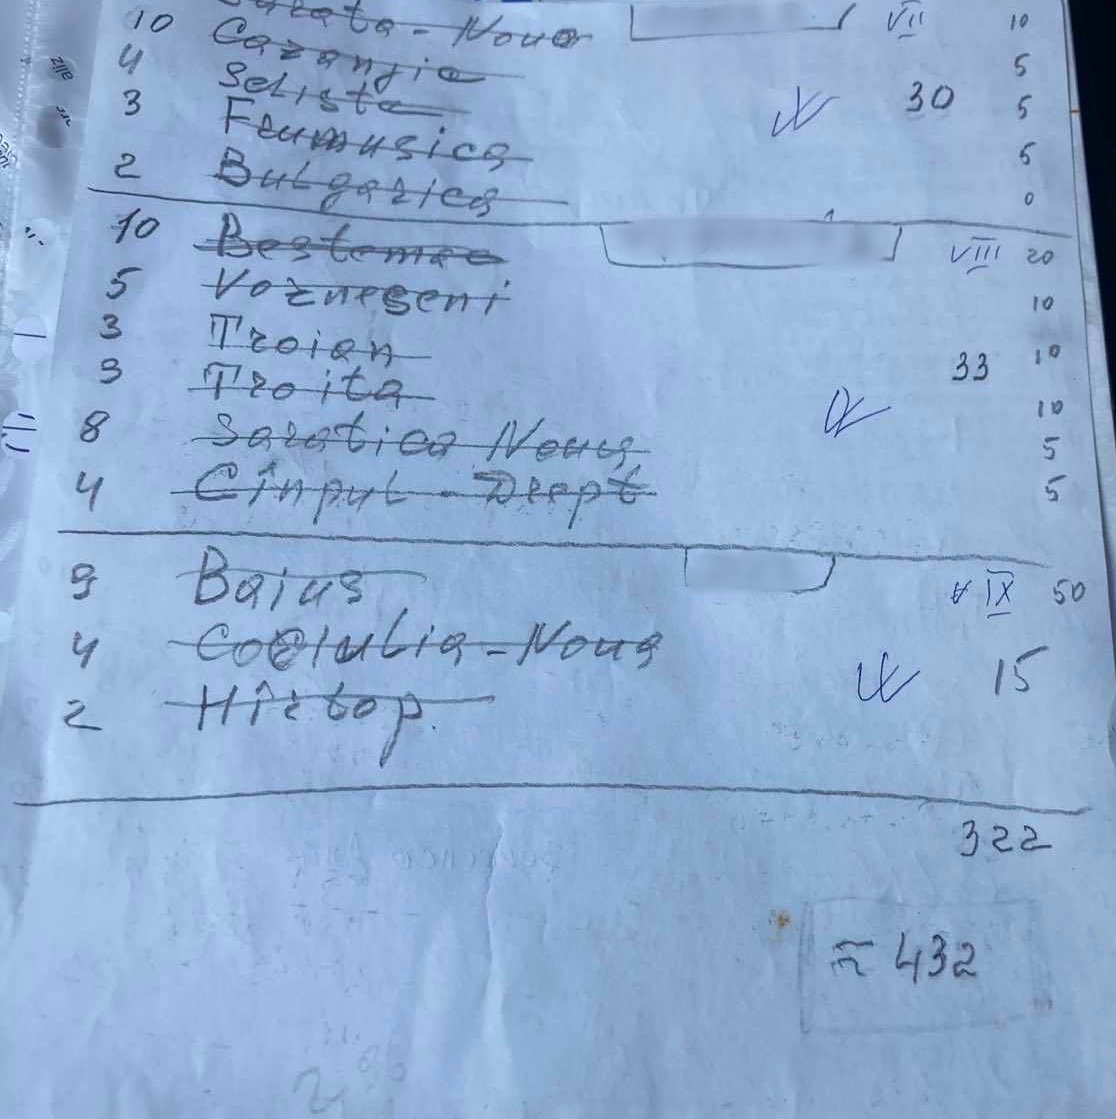 10 Sarata-Noua VII 10
4 Cazanjic 5
3 Seliste 30 5
Frumusica 5
2 Bulgarica 0
10 Bestemac VIII 20
5 Vozneseni 10
3 Troian 10
3 Troita 33 10
8 Saratica Noua 5
4 Cînpul-Drept 5
9 Baius IX 50
4 Cociulia-Noua 15
2 Hîrtop
322
≈ 432